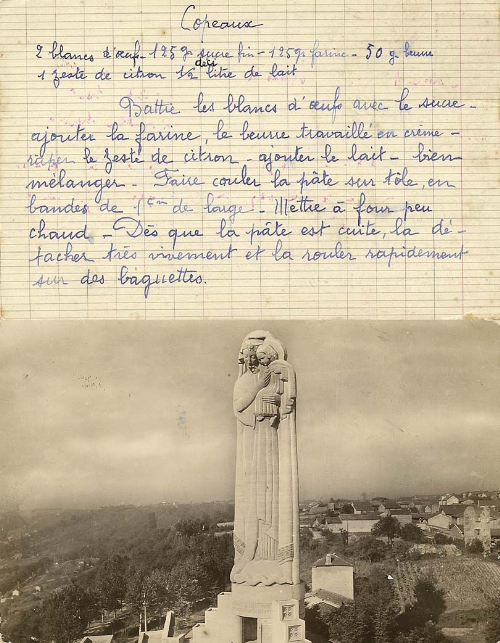 Copeaux
2 blancs d'œufs - 125 gr sucre fin - 125 gr farine - 50 gr beurre
1 zeste de citron 1/2 déci litre de lait
Battre les blancs d'œufs avec le sucre -
ajouter la farine, le beurre travaillé en crème -
raper le zeste de citron - ajouter le lait - bien
mélanger - Faire couler la pâte sur tôle, en
bandes de 1 cm de large - Mettre à four peu
chaud - Dès que la pâte est cuite, la dé-
tacher très vivement et la rouler rapidement
sur des baguettes.